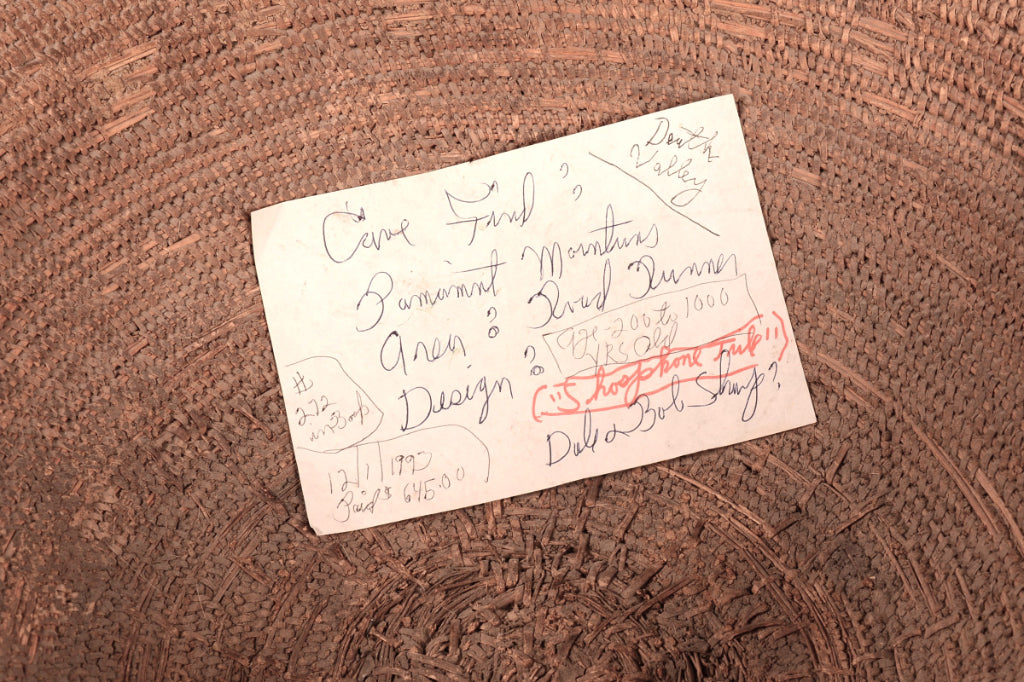 Cave Find ?
Death
Valley
?
Panamint Mountains
Area ? Road Runner
Design ?
age-200 to 1000
YRS Old
("Shoephone Tribe")
Dale & Bob Sharp ?
#
272
in Book
12/1/1995
Paid $ 645.00